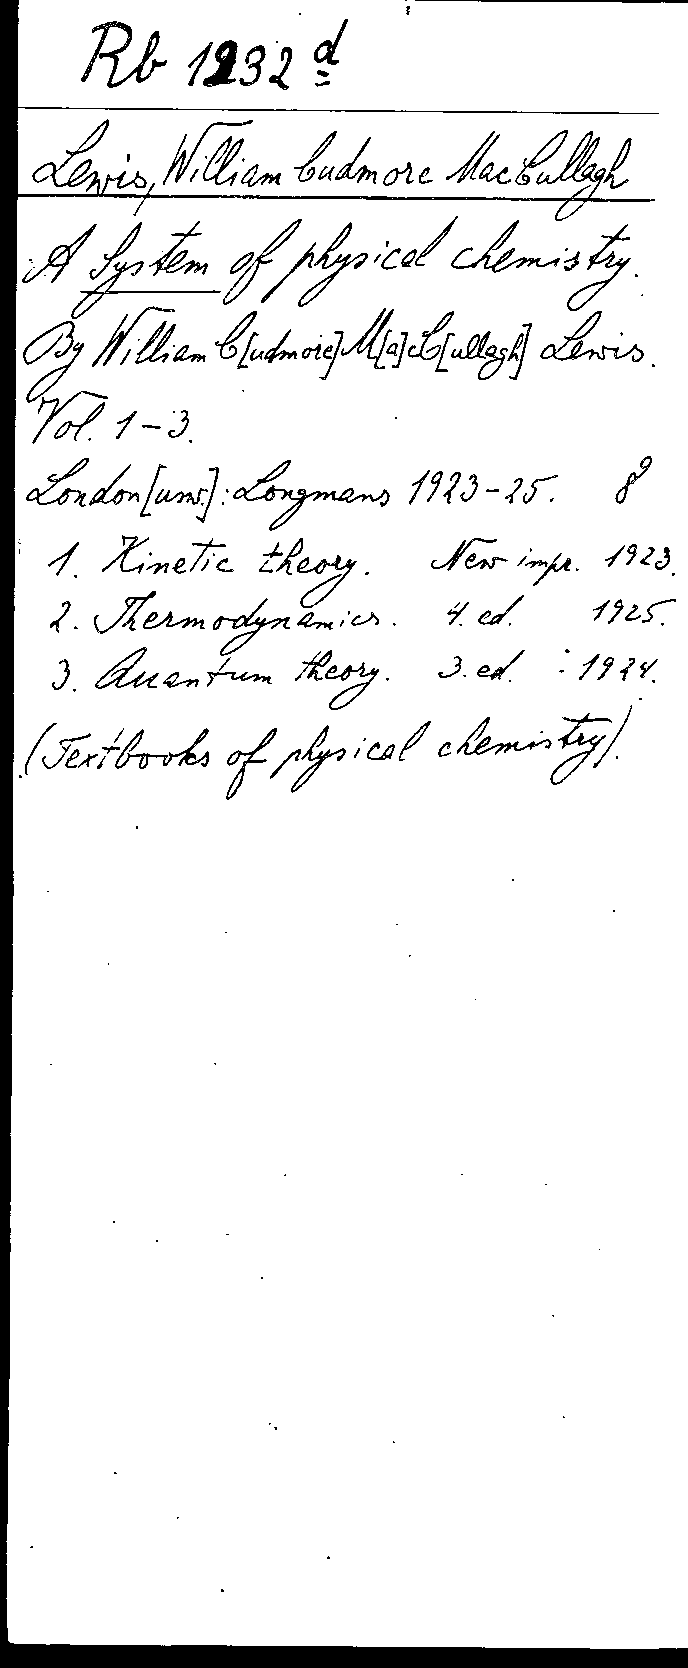 Rb 1232 d
Lewis, William Cudmore MacCullagh
A System of physical chemistry.
By William C[udmore] M[a]cC[ullagh] Lewis.
Vol. 1-3.
London [usw.]: Longmans 1923-25. 8°
1. Kinetic theory. New impr. 1923.
2. Thermodynamics. 4. ed. 1925.
3. Quantum theory. 3. ed. 1924.
(Textbooks of physical chemistry).